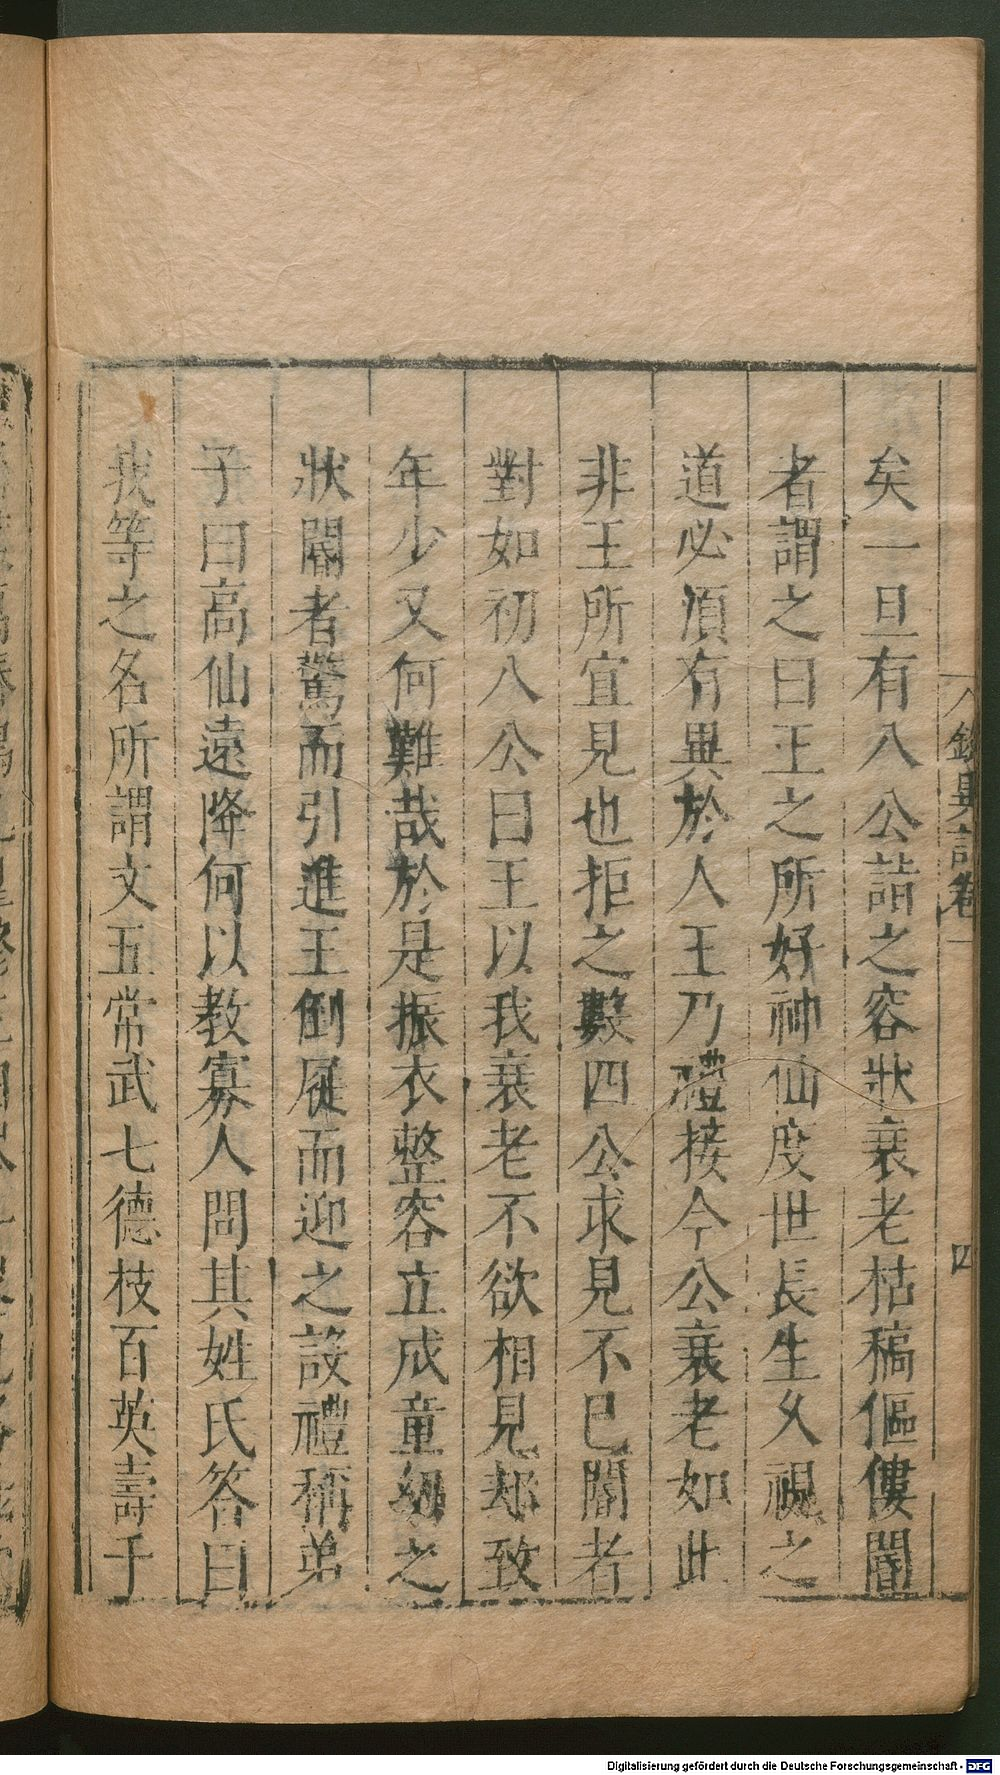 矣一旦有八公詣之容狀衰老枯稿傴僂閽
者謂之曰王之所好神仙度世長生久視之
道必須有異於人王乃禮接今公衰老如此
非王所宜見也拒之數四公求見不已閽者
對如初八公曰王以我衰老不欲相見却致
年少又何難哉於是振衣整容立成童幼之
狀閽者驚而引進王倒屣而迎之設禮稱弟
子曰高仙遠降何以教寡人問其姓氏答曰
我等之名所謂文五常武七德枝百英壽千
錄異記卷一
四
Digitalisierung gefördert durch die Deutsche Forschungsgemeinschaft - DFG